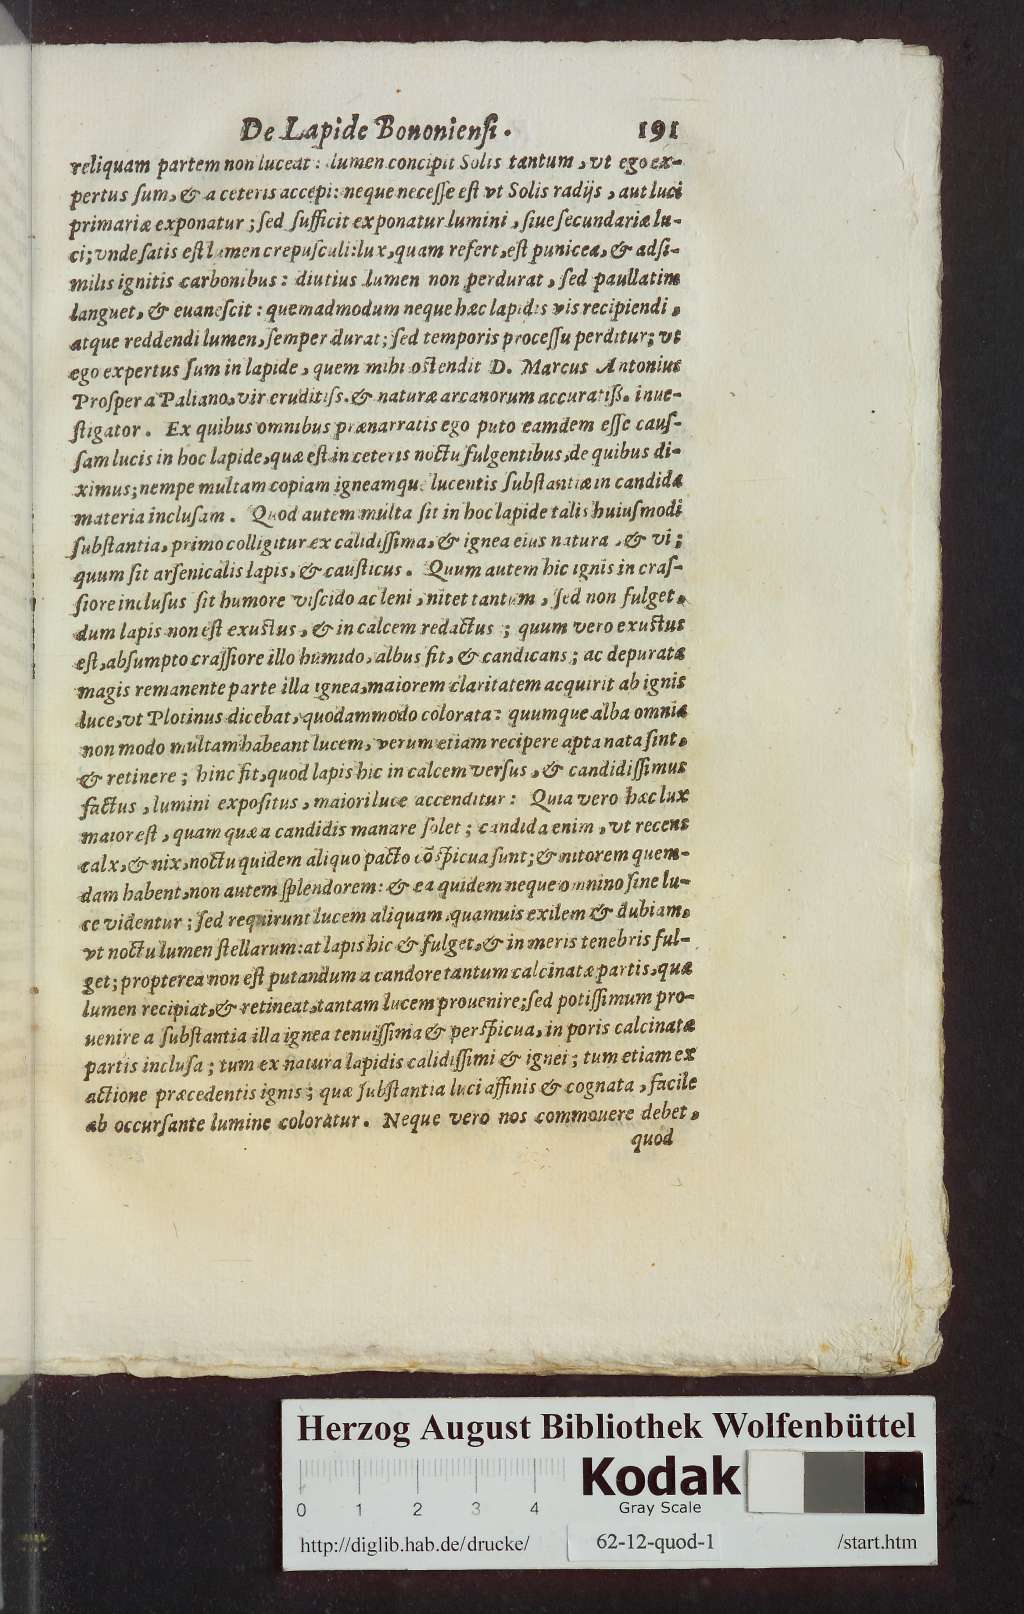 De Lapide Bononiensi. 191
reliquam partem non luceat: lumen concipit Solis tantum, vt ego ex-
pertus sum, & a ceteris accepi: neque necesse est vt Solis radijs, aut luci
primariæ exponatur; sed sufficit exponatur lumini, siue secundariæ lu-
ci; vnde satis est lumen crepusculi: lux, quam refert, est punicea, & adsi-
milis ignitis carbonibus: diutius lumen non perdurat, sed paullatim
languet, & euanescit: quemadmodum neque hæc lapidis vis recipiendi,
atque reddendi lumen, semper durat; sed temporis processu perditur; vt
ego expertus sum in lapide, quem mihi ostendit D. Marcus Antonius
Prosper a Paliano, vir eruditiss. & naturæ arcanorum accuratiss. inue-
stigator. Ex quibus omnibus prænarratis ego puto eamdem esse caus-
sam lucis in hoc lapide, quæ est in ceteris noctu fulgentibus, de quibus di-
ximus; nempe multam copiam igneamque lucentis substantiæ in candida
materia inclusam. Quod autem multa sit in hoc lapide talis huiusmodi
substantia, primo colligitur ex calidissima, & ignea eius natura, & vi;
quum sit arsenicalis lapis, & causticus. Quum autem hic ignis in cras-
siore inclusus sit humore viscido ac leni, nitet tantum, sed non fulget,
dum lapis non est exustus, & in calcem redactus; quum vero exustus
est, absumpto crassiore illo humido, albus fit, & candicans; ac depurata
magis remanente parte illa ignea, maiorem claritatem acquirit ab ignis
luce, vt Plotinus dicebat, quodammodo colorata: quumque alba omnia
non modo multam habeant lucem, verum etiam recipere apta nata sint,
& retinere; hinc fit, quod lapis hic in calcem versus, & candidissimus
factus, lumini expositus, maiori luce accenditur: Quia vero hæc lux
maior est, quam quæ a candidis manare solet; candida enim, vt recens
calx, & nix, noctu quidem aliquo pacto cōspicua sunt; & nitorem quem-
dam habent, non autem splendorem: & ea quidem neque omnino sine lu-
ce videntur; sed requirunt lucem aliquam, quamuis exilem & dubiam,
vt noctu lumen stellarum: at lapis hic & fulget, & in meris tenebris ful-
get; propterea non est putandum a candore tantum calcinatæ partis, quæ
lumen recipiat, & retineat, tantam lucem prouenire; sed potissimum pro-
uenire a substantia illa ignea tenuissima & perspicua, in poris calcinatæ
partis inclusa; tum ex natura lapidis calidissimi & ignei; tum etiam ex
actione præcedentis ignis; quæ substantia luci affinis & cognata, facile
ab occursante lumine coloratur. Neque vero nos commouere debet,
quod
Herzog August Bibliothek Wolfenbüttel
Kodak
0 1 2 3 4
Gray Scale
http://diglib.hab.de/drucke/ 62-12-quod-1 /start.htm